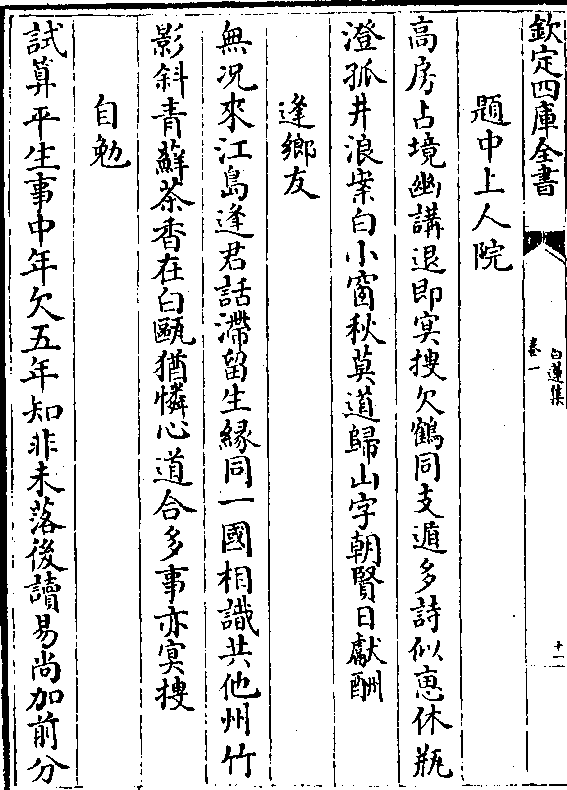 欽定四庫全書
白蓮集
卷一
十一
題中上人院
高房占境幽講退即㝠搜欠鶴同支遁多詩似惠休瓶
澄孤井浪案白小窗秋莫道歸山字朝賢日獻酬
逢鄉友
無况來江島逢君話滯留生緣同一國相識共他州竹
影斜青蘚茶香在白甌猶憐心道合多事亦㝠搜
自勉
試算平生事中年欠五年知非未落後讀易尚加前分